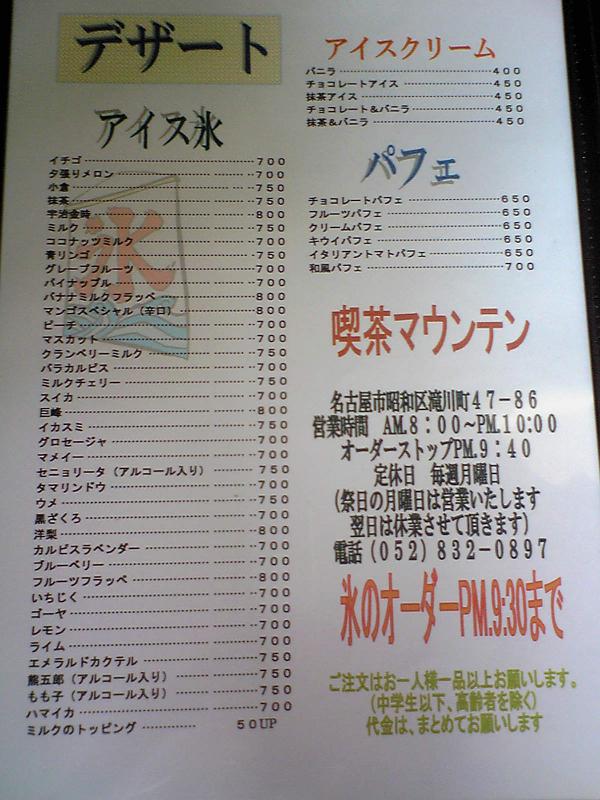 デザート
アイス氷
イチゴ 700
夕張りメロン 700
小倉 750
抹茶 750
宇治金時 800
ミルク 750
ココナッツミルク 700
青リンゴ 750
グレープフルーツ 700
パイナップル 700
バナナミルクフラッペ 800
マンゴスペシャル（辛口） 800
ピーチ 700
マスカット 700
クランベリーミルク 750
バラカルピス 700
ミルクチェリー 750
スイカ 700
巨峰 800
イカスミ 750
グロセージャ 700
マメイー 700
セニョリータ（アルコール入り） 750
タマリンドウ 700
ウメ 750
黒ざくろ 700
洋梨 800
カルピスラベンダー 700
ブルーベリー 700
フルーツフラッペ 800
いちじく 700
ゴーヤ 700
レモン 700
ライム 700
エメラルドカクテル 750
熊五郎（アルコール入り） 750
もも子（アルコール入り） 750
ハマイカ 700
ミルクのトッピング 50UP
氷
アイスクリーム
バニラ 400
チョコレートアイス 450
抹茶アイス 450
チョコレート&バニラ 450
抹茶&バニラ 450
パフェ
チョコレートパフェ 650
フルーツパフェ 650
クリームパフェ 650
キウイパフェ 650
イタリアントマトパフェ 650
和風パフェ 700
喫茶マウンテン
名古屋市昭和区滝川町47-86
営業時間 AM.8:00～PM.10:00
オーダーストップPM.9:40
定休日 毎週月曜日
(祭日の月曜日は営業いたします
翌日は休業させて頂きます)
電話(052)832-0897
氷のオーダーPM.9:30まで
ご注文はお一人様一品以上お願いします。
(中学生以下、高齢者を除く)
代金は、まとめてお願いします